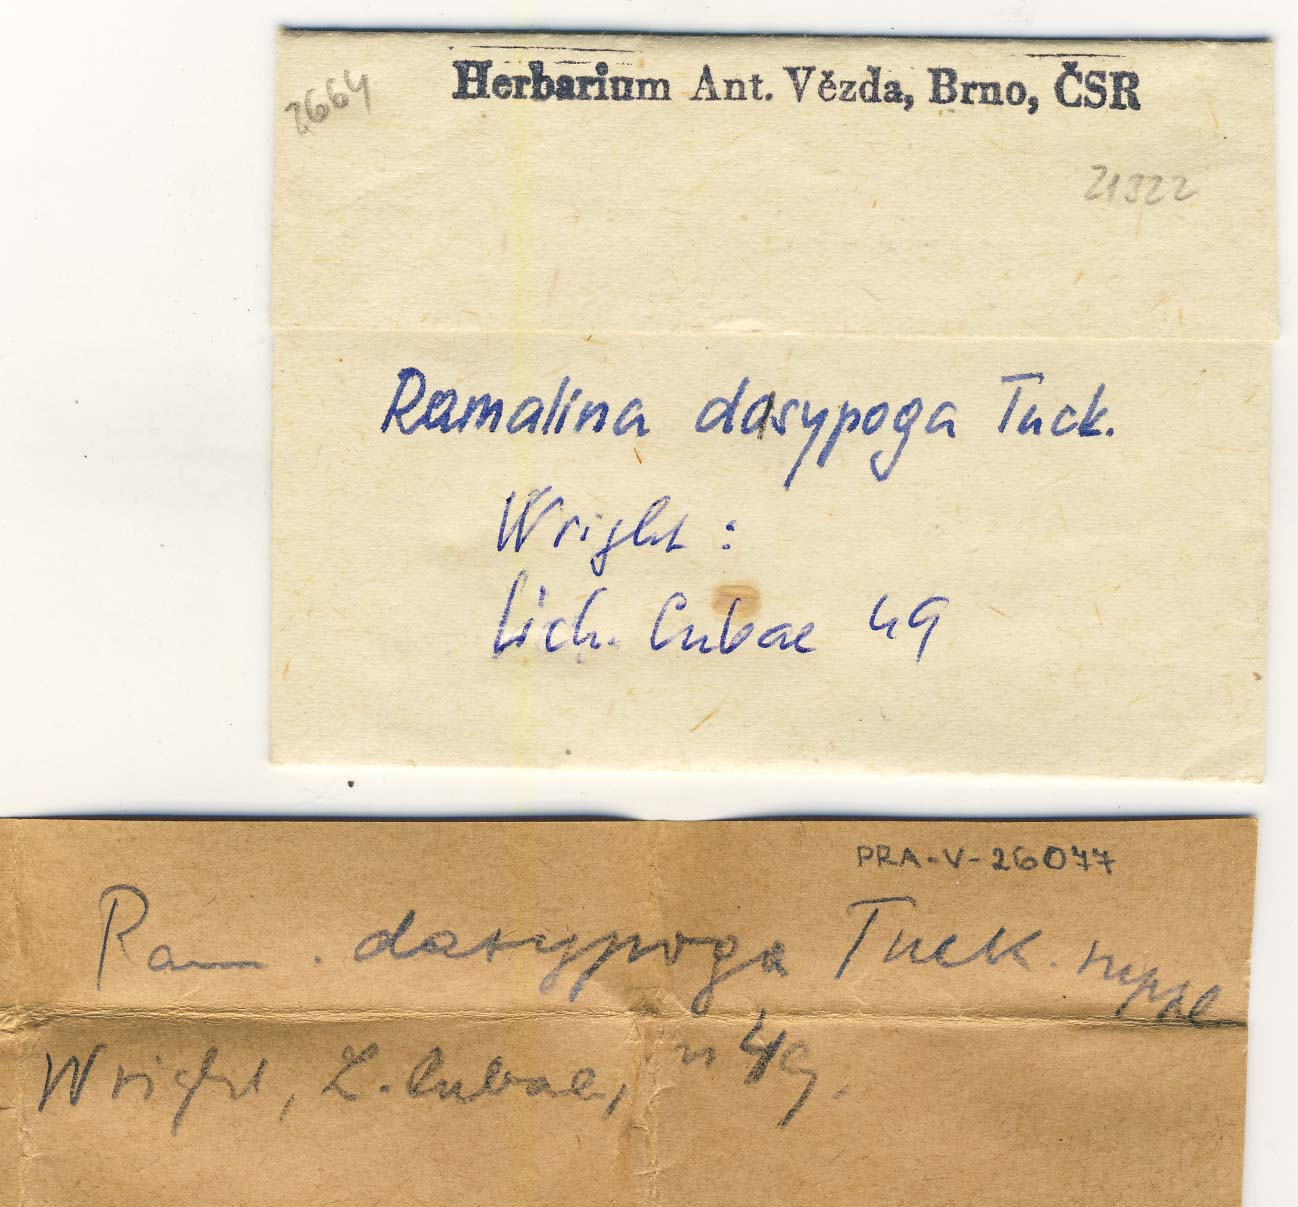 2664
Herbarium Ant. Vězda, Brno, ČSR
21922
Ramalina dasypoga Tuck.
Wright :
Lich. Cubae 49
PRA-V-26077
Ram. dasypoga Tuck. suppl
Wright, L. Cubae, n 49.